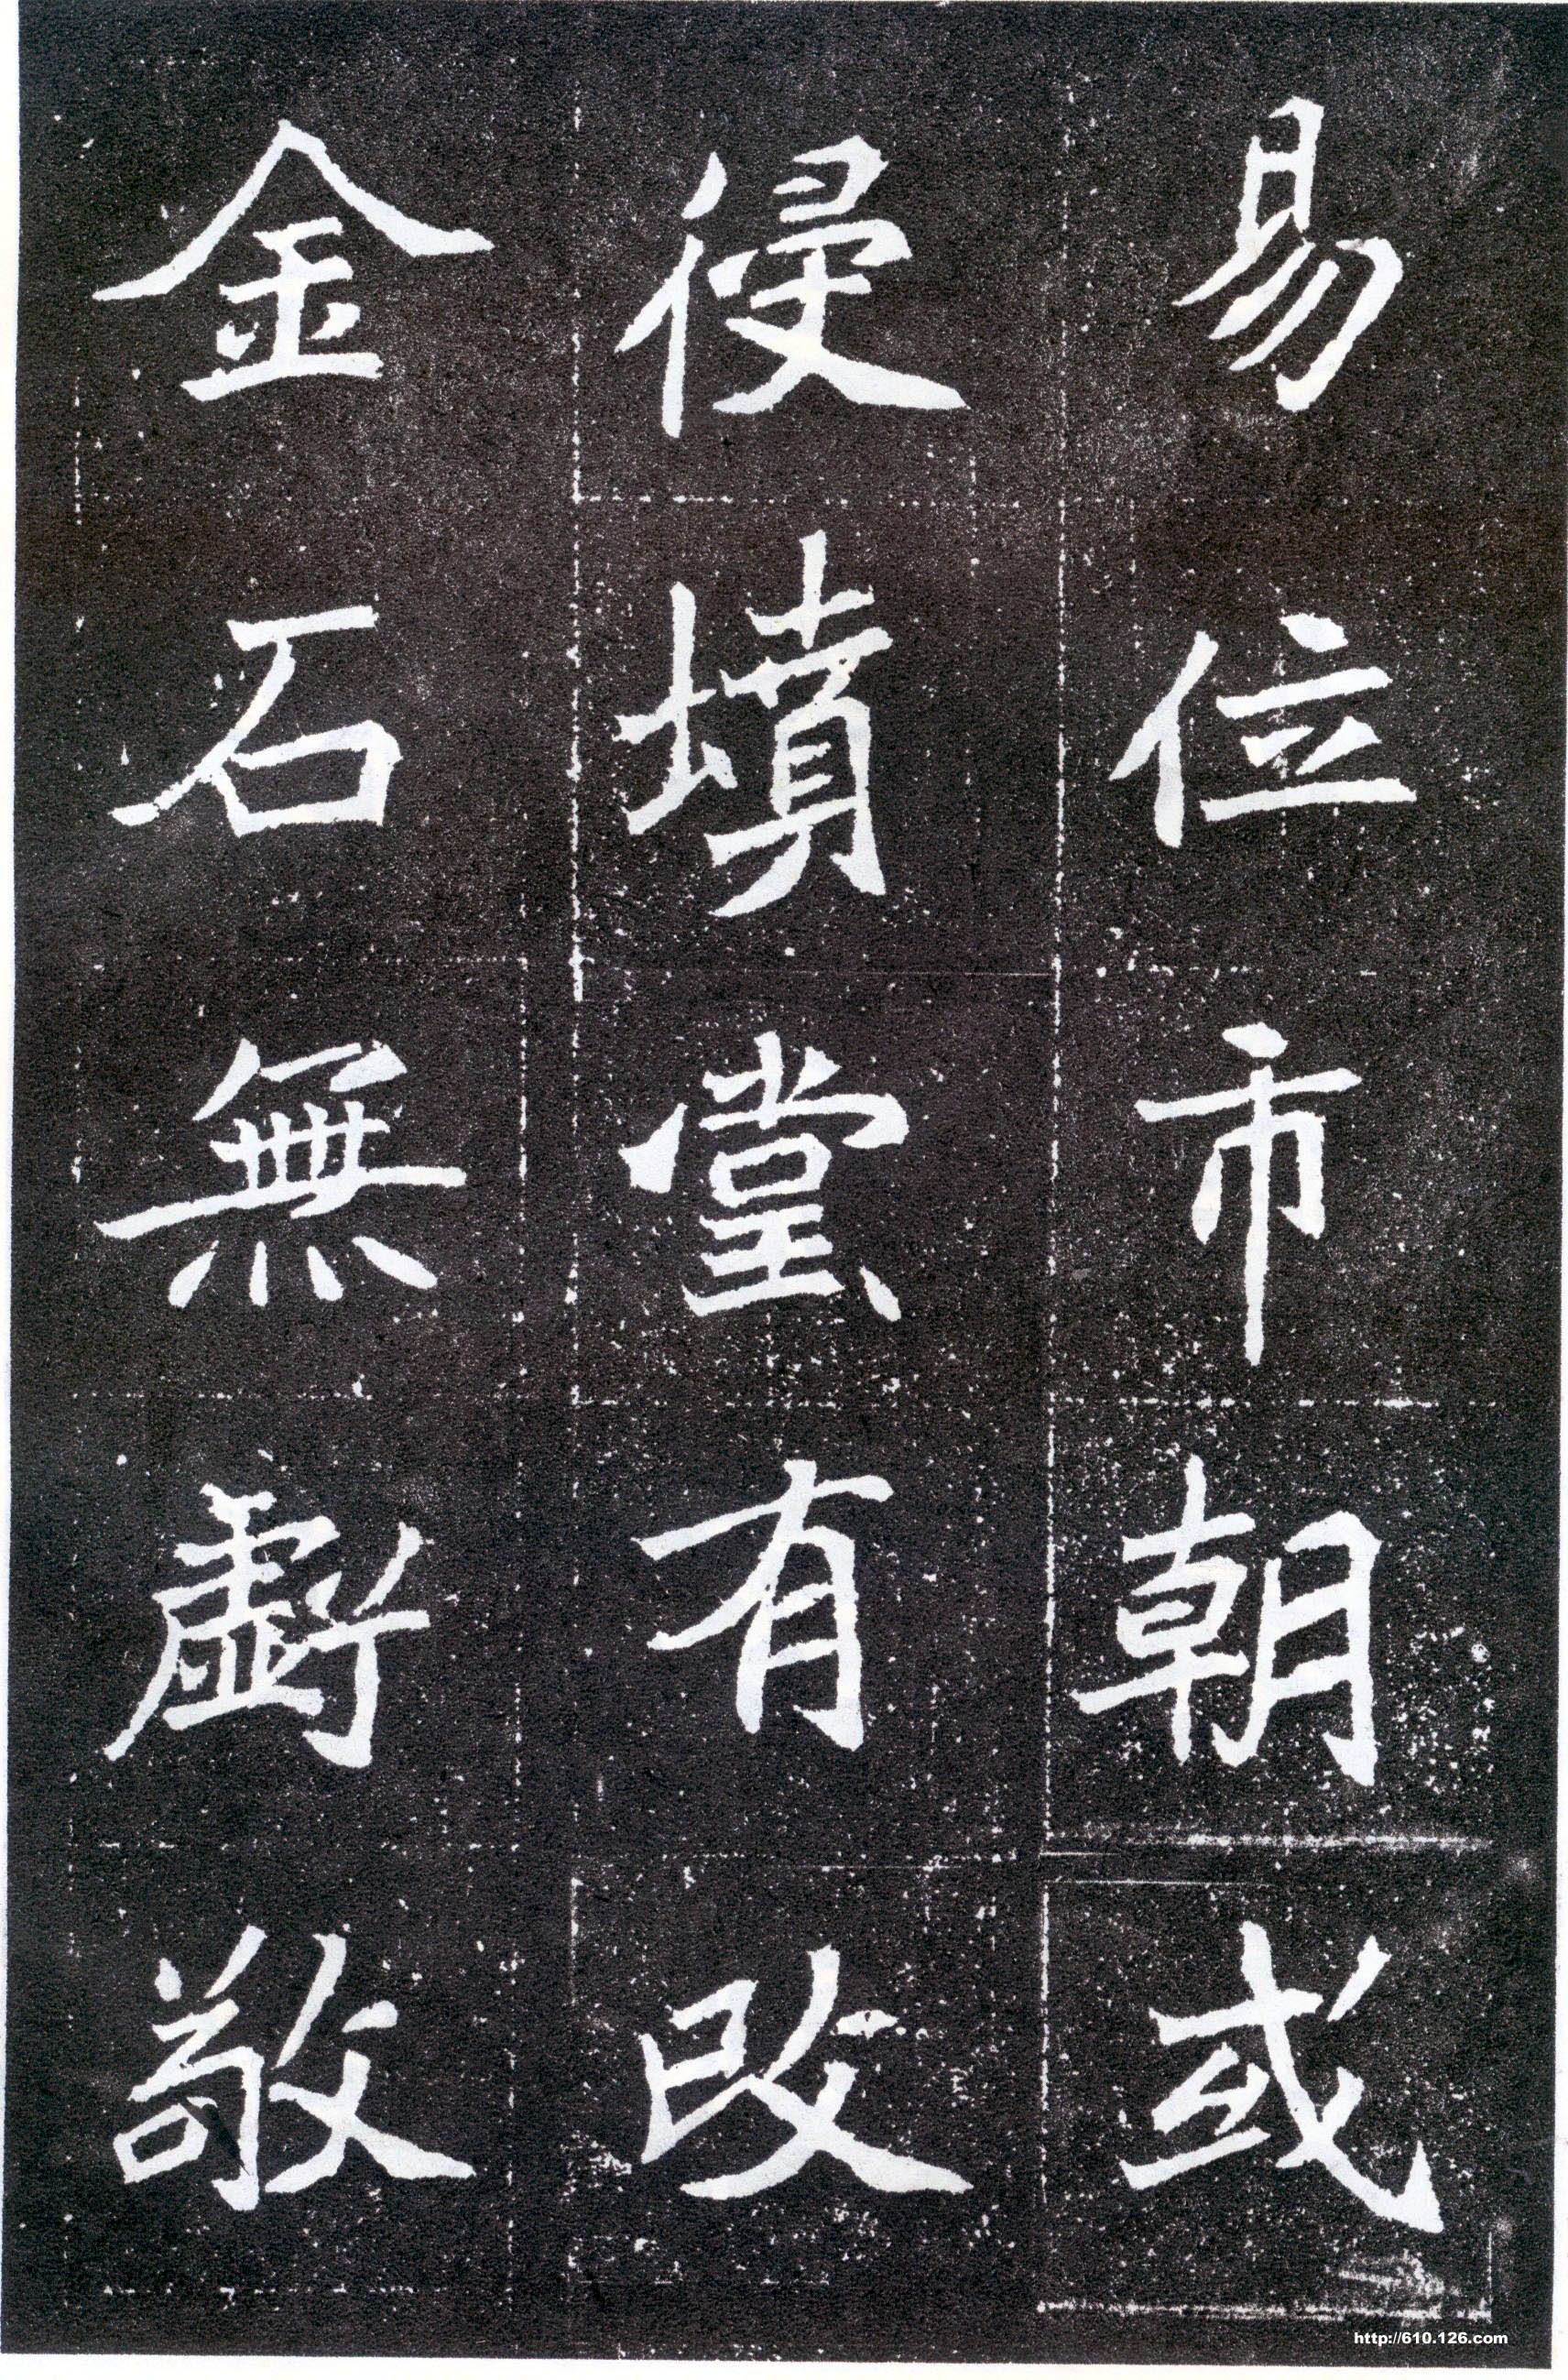 易位市朝或
侵墳堂有改
金石無虧敬
http://610.126.com